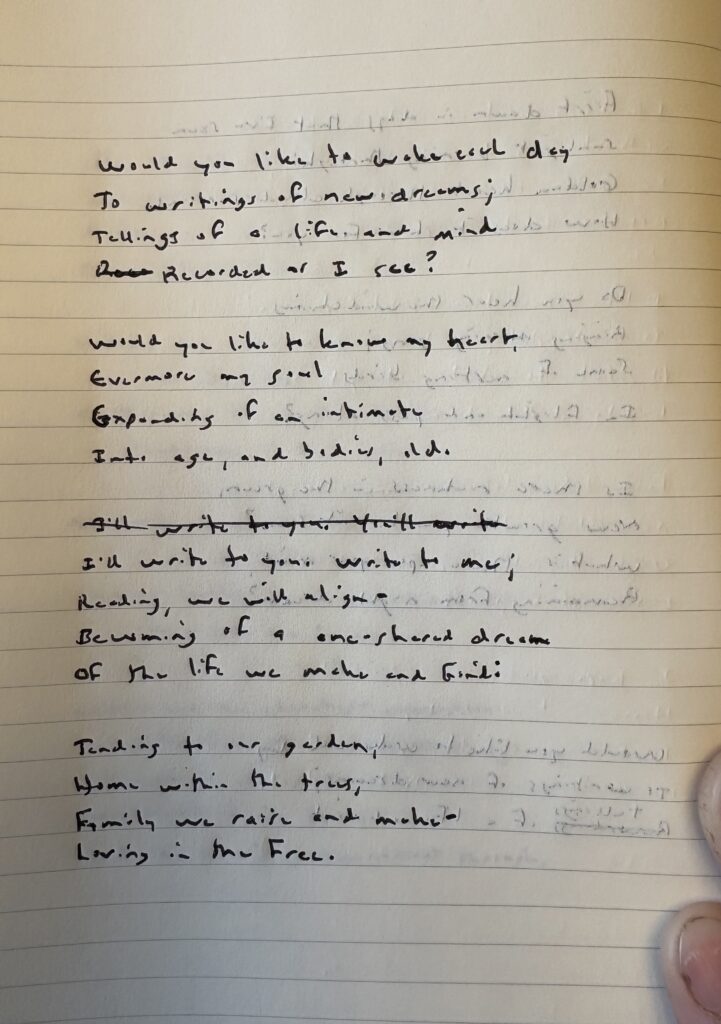 Would you like to wake each day
To writings of new dreams;
Tellings of a life and mind
Recorded as I see?
Would you like to know my heart,
Evermore my soul
Expanding of an intimate
Into age, and bodies, old.
I'll write to you. You'll write
I'll write to you. write to me;
Reading, we will align-
Becoming of a one-shared dream
Of the life we make and find:
Tending to our garden,
Home within the trees,
Family we raise and make-
Loving in the Free.